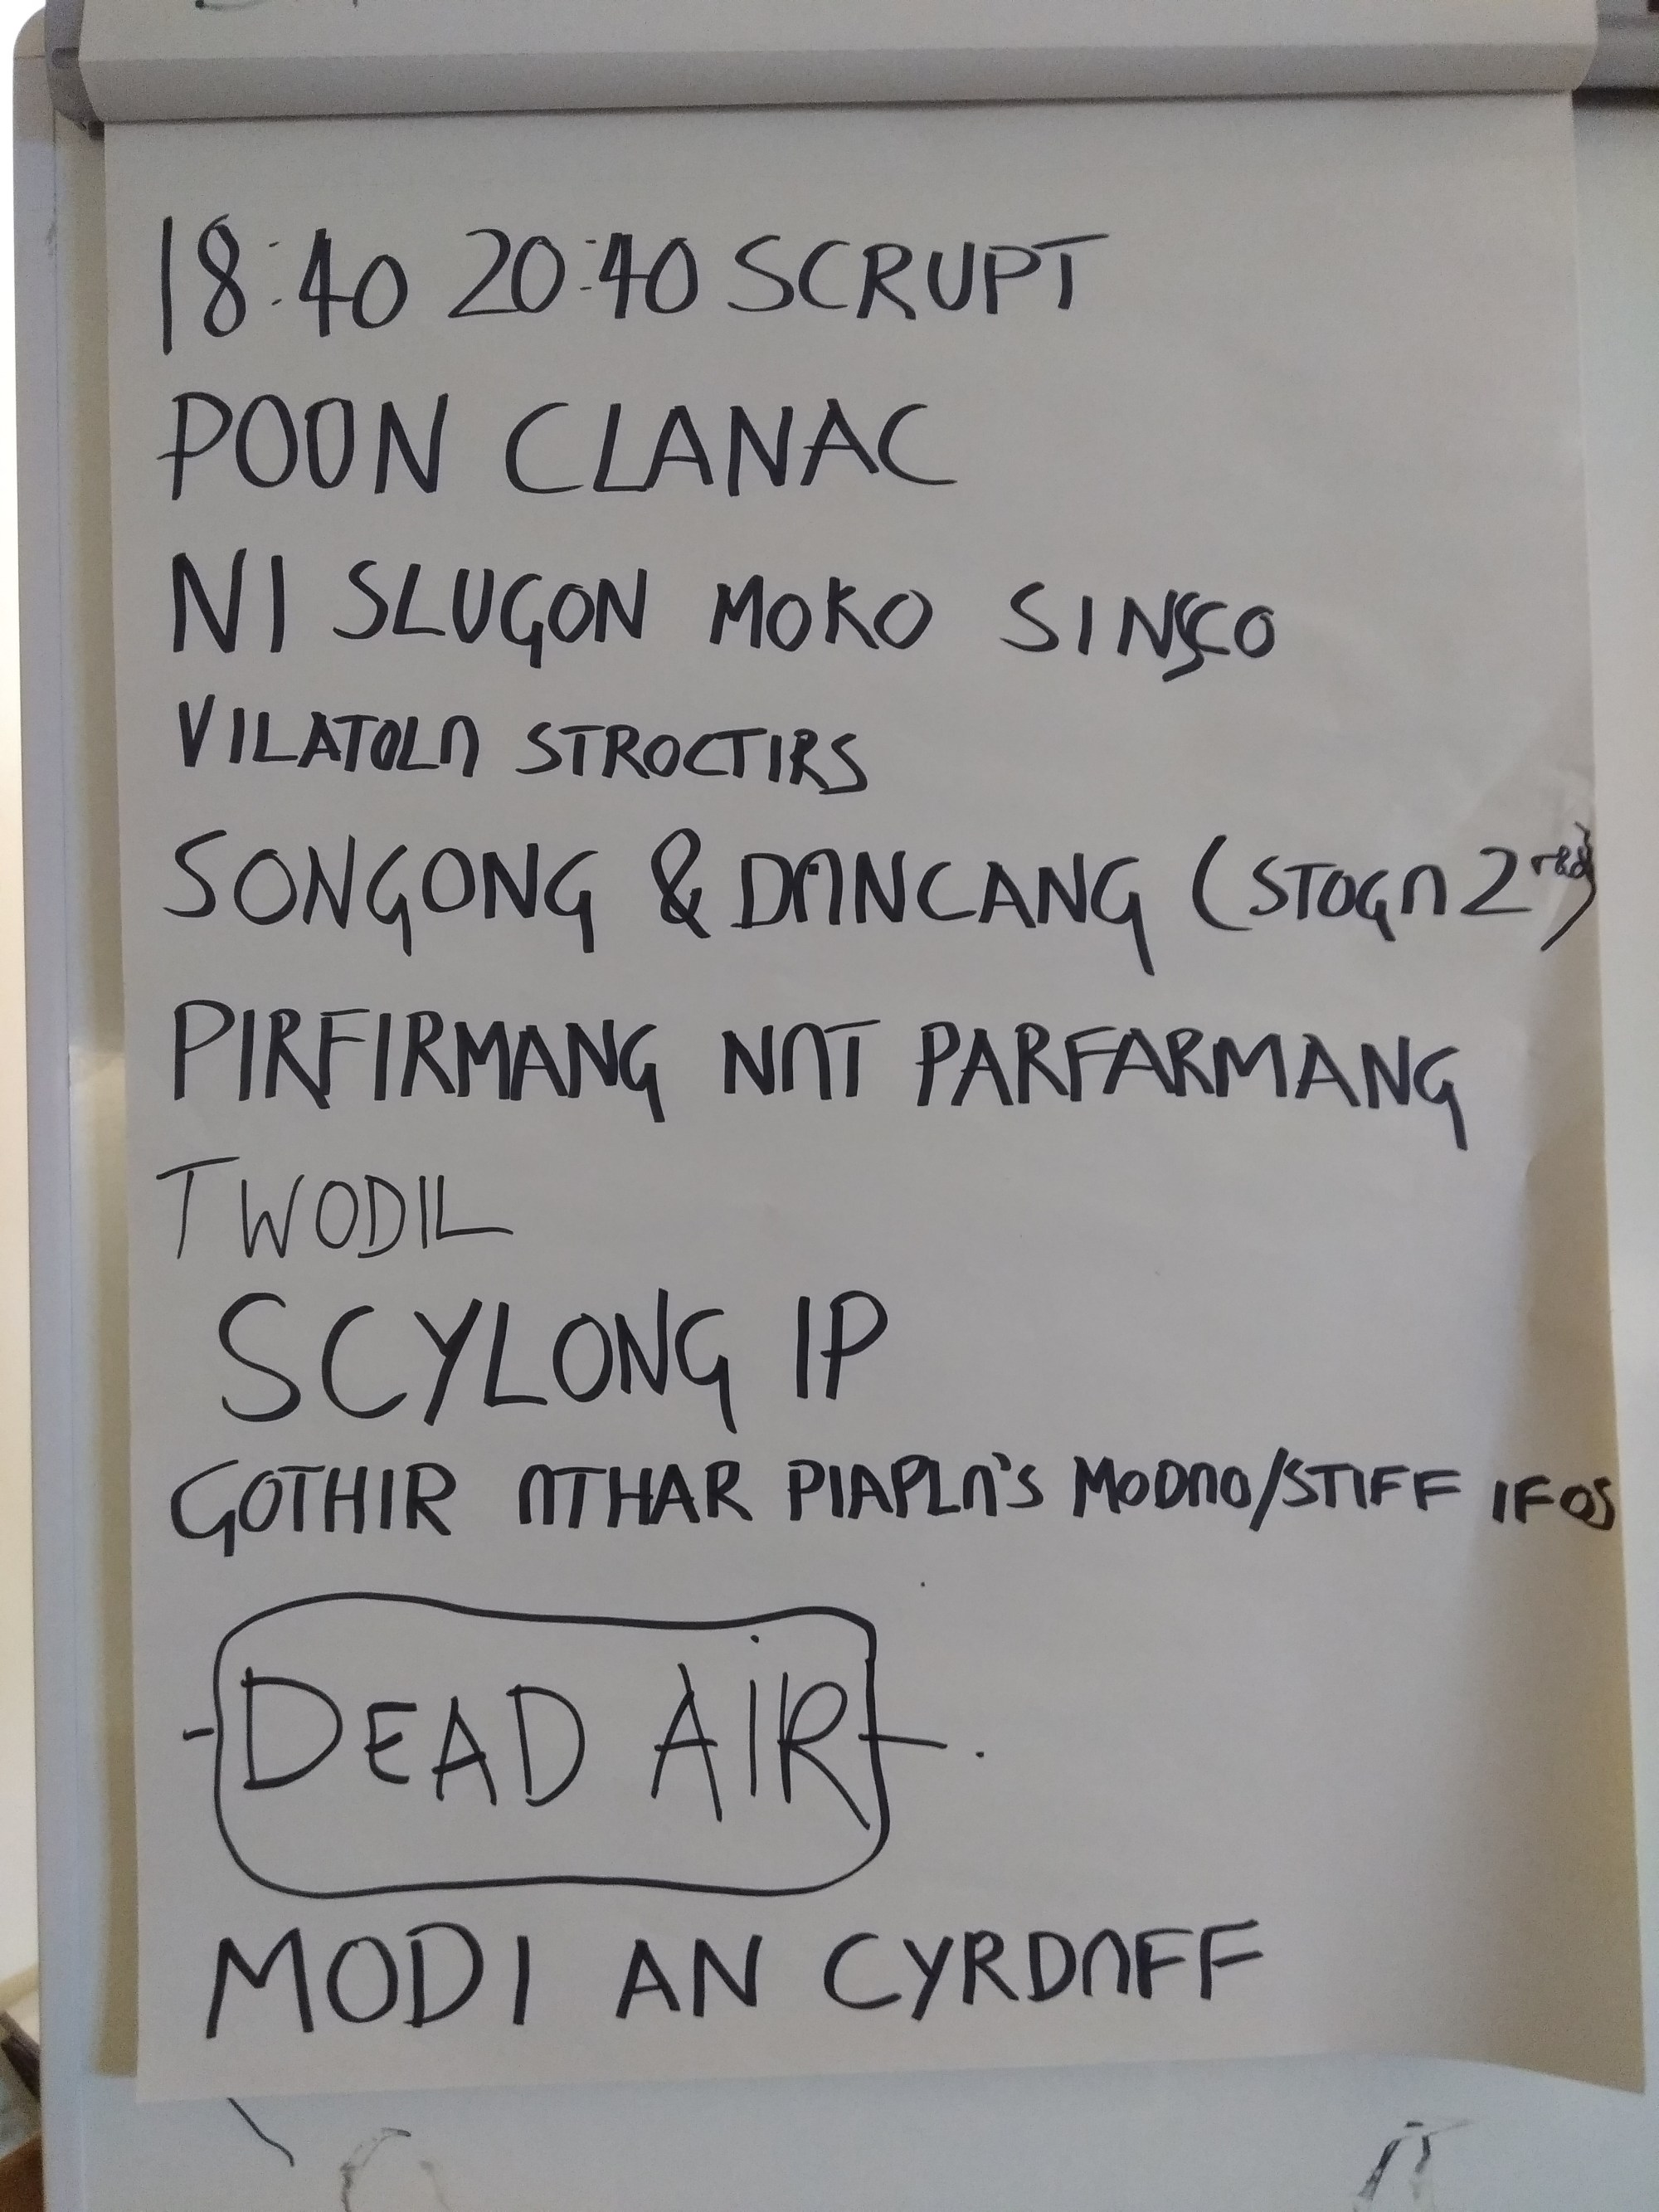 18:40 20:40 SCRUPT
POON CLANAC
NI SLUGON MOKO SINSCO
VILATOLN STROCTIRS
SONGONG & DANCANG (STOGN 2
PIRFIRMANG NNT PARFARMANG
TWODIL
SCYLONG IP
GOTHIR NTHAR PIAPLN'S MODNO/STIFF IFOS
DEAD AIR
MODI AN CYRDNFF